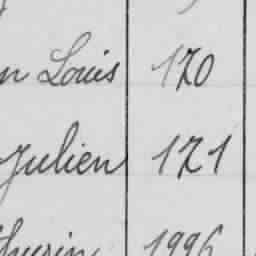 n Louis 170
Julien 171
thurin 1996